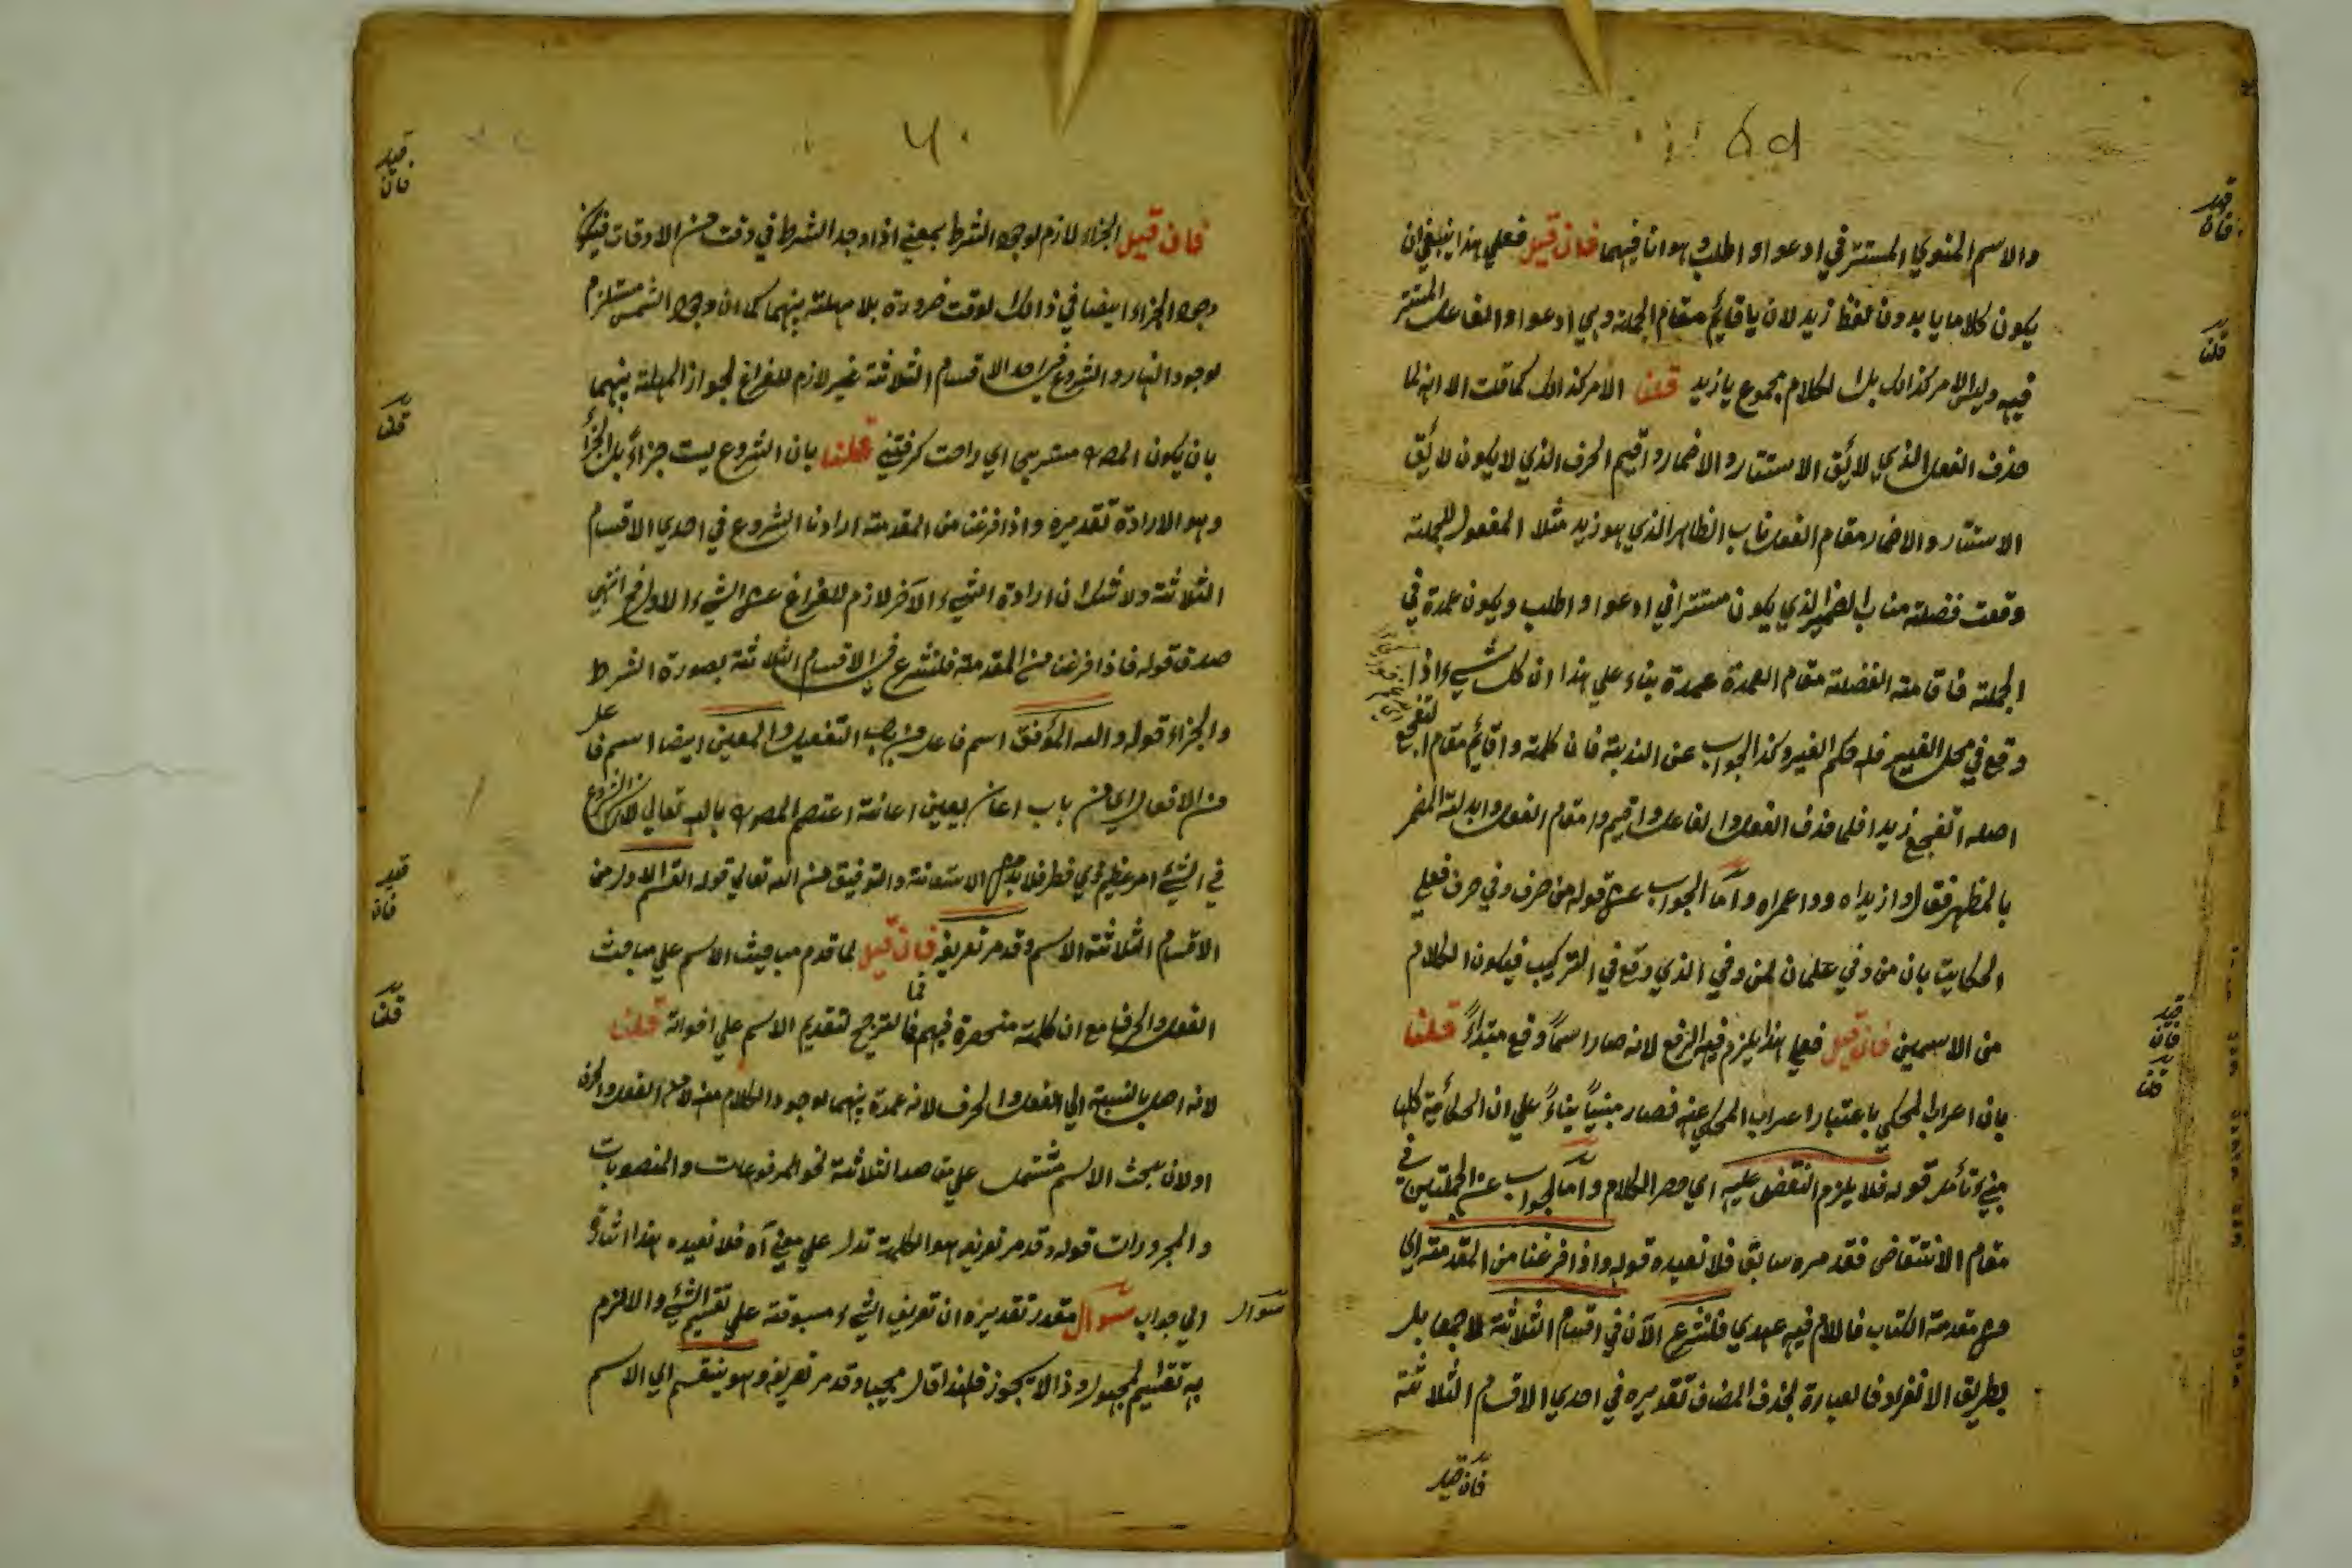 ٥٩
والاسم المنوي المستتر في ادعو او اطلب وهو انا فيهما فان قيل فعلي هذا ينبغي ان
يكون كلاما يا بدون لفظ زيد لان يا قائم مقام الجملة وهي ادعوا والفاعل المستتر
فيه وليس الامر كذالك بل الكلام مجموع يا زيد قلنا الامر كذالك كما قلت الا انه لما
حذف الفعل الذي لائق الاستتار والاضمار واقيم الحرف الذي لا يكون لائق
الاستتار والاضمار مقام الفعل ناب الظاهر الذي هو زيد مثلا المفعول للجملة
وقعت فضلة مناب الضمير الذي يكون مستترا في ادعوا واطلب ويكون عمدة في
الجملة فاقامة الفضلة مقام العمدة عمدة بناء علي هذا ان كل شيء اذا
وقع في محل الغير فله حكم الغير وكذا الجواب عن الندبة فان كلمة وا قائم مقام اتفجع
اصله اتفجع زيدا فلما حذف الفعل والفاعل واقيم وا مقام الفعل وابدلت المضمر
بالمظهر فقال وا زيداه ووا عمراه واما الجواب عن قوله من حرف وفي حرف فعلي
الحكاية بان من وفي علمان لمن وفي الذي وقع في التركيب فيكون الكلام
من الاسمين فان قيل فعلي هذا يلزم فيه الرفع لانه صار اسماً وقع مبتداءً قلنا
بان اعراب المحكي باعتبار اعراب المحكي عنه فصار مبنياً بناءً علي ان الحكائية كلها
مبني تأمل قوله فلا يلزم النقض عليه اي حصر الكلام واما الجواب عن الجملتين في
مقام الانتقاض فقد مره سابق فلا نعيده قوله واذا فرغنا من المقدمة اي
من مقدمة الكتاب فالام فيه عهدي فلنشرع الآن في اقسام الثلاثة لا جمعا بل
بطريق الانفراد فالعبارة بحذف المضاف تقديره في احدي الاقسام الثلاثة
فان قيل
قلنا
فان قيل
قلنا
فان قيل
٦٠
فان قيل الجزاء لازم لوجود الشرط بمعني اذا وجد الشرط في وقت من الاوقات فيكون
وجود الجزاء ايضا في ذالك لوقت ضرورة بلا مهلة بينهما كما ان وجود الشمس مستلزم
لوجود النهار والشروع في احد الاقسام الثلاثة غير لازم للفراغ لجواز المهلة بينهما
بان يكون المصـ مشربي اي راحت كرفتني قلنا بان الشروع ليست جزاءً بل الجزاءُ
وهو الارادة تقديره واذا فرغنا من المقدمة ارادنا الشروع في احدي الاقسام
الثلاثة ولا شك ان ارادة الشيء الآخر لازم للفراغ عن الشيء الاول فح انتهي
صدق قوله فاذا فرغنا من المقدمة فلنشرع في الاقسام الثلاثة بصورة الشرط
والجزاء قوله والله الموفق اسم فاعل من باب التفعيل والمعين ايضا اسم فاعل
من الافعال اي من باب اعان يعين اعانة اعتصم المصـ بالله تعالي لان الشروع
في الشيء امر عظيم ذي خطر فلا بد من الاستعانة والتوفيق من الله تعالي قوله القسم الاول من
الاقسام الثلاثة الاسم وقد مر تعريفه فان قيل لما قدم مباحث الاسم علي مباحث
الفعل والحرف مع ان كلمة منحصرة فيهم فما الترجيح لتقديم الاسم علي اخواته قلنا
لانه اصل بالنسبة الي الفعل والحرف لانه عمدة بينهما لوجود الكلام منه لا من الفعل والحرف
اولان بحث الاسم مشتمل علي مقاصد الثلاثة نحو المرفوعات والمنصوبات
والمجرورات قوله وقد مر تعريفه هو الكلمة تدل علي معني آه فلا نعيده هذا اشارة
الي جواب سوال مقدر تقديره ان تعريف الشيء مسبوقة علي تقسيم الشيء والا لزم
به تقسيم المجهول وذا لا يجوز فلهذا قال مجيبا وقد مر تعريفه وهو ينقسم الي الاسم
سوال
فان قيل
قلنا
فان قيل
قلنا